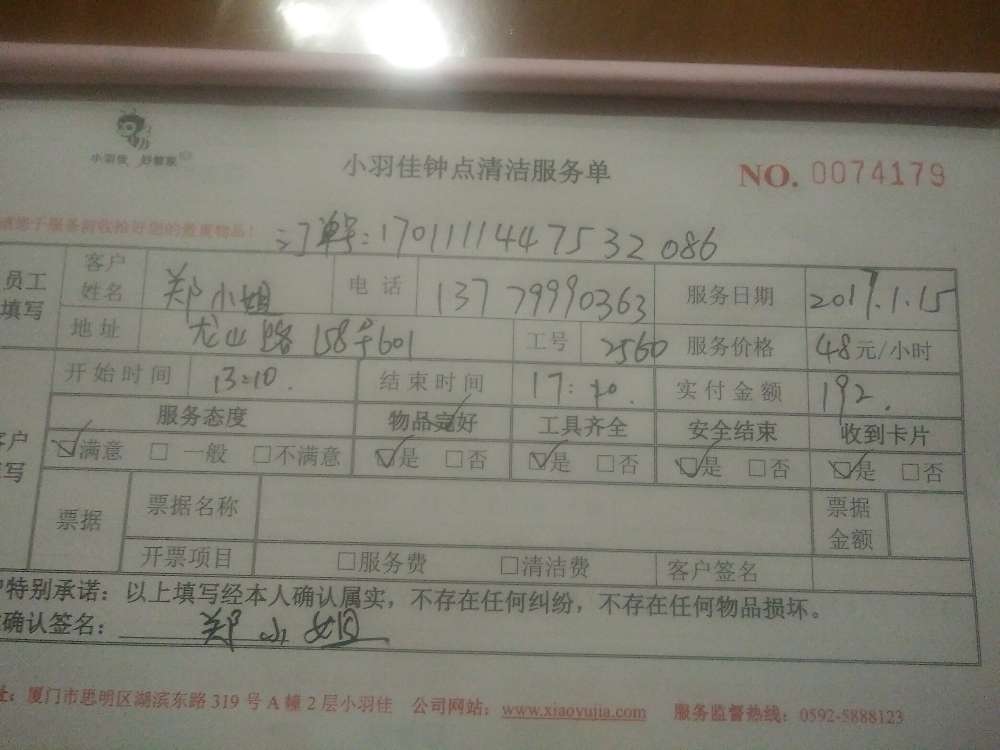 小羽佳 好管家
小羽佳钟点清洁服务单 NO. 0074179
请您于服务前收拾好您的贵重物品！ 订单号：1701111447532086
员工填写 客户姓名 郑小姐 电话 13779990363 服务日期 2017.1.15
地址 龙山路158号601 工号 2560 服务价格 48元/小时
开始时间 13:10. 结束时间 17: 实付金额 192.
服务态度 物品完好 工具齐全 安全结束 收到卡片
☑满意 □一般 □不满意 ☑是 □否 ☑是 □否 ☑是 □否 ☑是 □否
票据 票据名称 票据金额
开票项目 □服务费 □清洁费 客户签名
特别承诺：以上填写经本人确认属实，不存在任何纠纷，不存在任何物品损坏。
确认签名： 郑小姐
址：厦门市思明区湖滨东路319号A幢2层小羽佳 公司网站：www.xiaoyujia.com 服务监督热线：0592-5888123